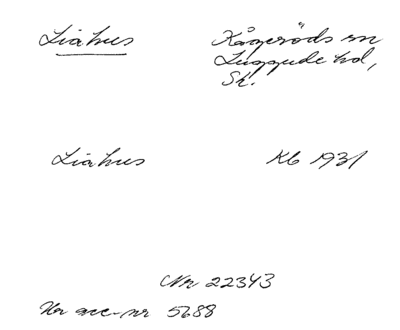 Liahus Kågeröds sn
Luggude hd,
Sk.
Liahus Kb 1931
Nr 22343
Hör acc-nr 5688